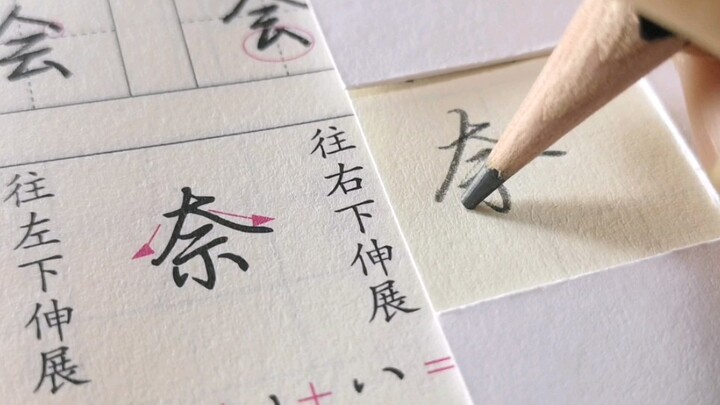 会 会
往左下伸展
奈
往右下伸展
奈
+ い =